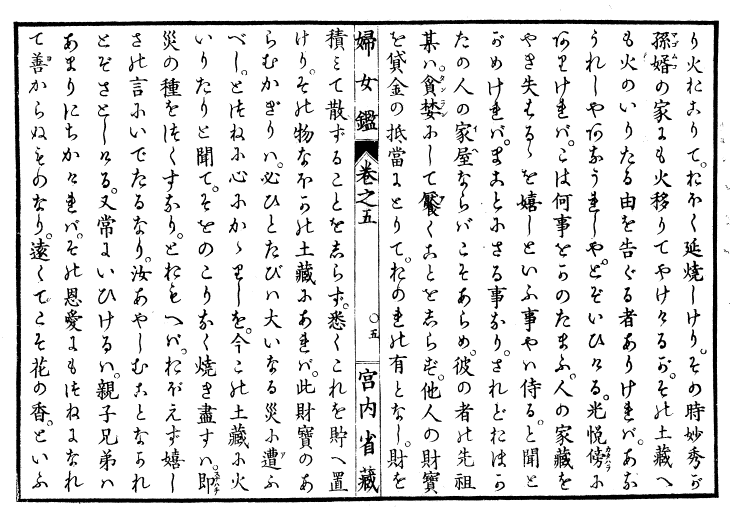 り火おこりて。おほく延焼しけり。その時妙秀が
孫婿の家にも火移りてやけゝるが。その土藏へ
も火のいりたる由を告ぐる者ありければ。あな
うれしやあなうれしや。とぞいひける。光悦傍に
ありければ。こは何事をかのたまふ。人の家藏を
やき失はるゝを嬉しといふ事やハ侍る。と聞と
がめければ。まことにさる事なり。されどおほか
たの人の家屋ならばこそあらめ。彼の者の先祖
某ハ。貪婪にして饜くことをしらず。他人の財寶
を貸金の抵當にとりて。おのれの有となし。財を
婦女鑑 卷之五 ○五 宮内省藏
積ミて散ずることをしらず。悉くこれを貯へ置
けり。その物なほかの土藏にあれば。此財寶のあ
らむかぎりハ。必ひとたびハ大いなる災に遭ふ
べし。とつねに心にかゝりしを。今この土藏に火
いりたりと聞て。そをのこりなく焼き盡すハ。即
災の種をつくすなり。とおもへば。おぼえず嬉し
さの言にいでたるなり。汝あやしむことなかれ
とぞさとしける。又常にいひけるハ。親子兄弟ハ
あまりにちかければ。その恩愛にもつねになれ
て善からぬものなり。遠くてこそ花の香。といふ